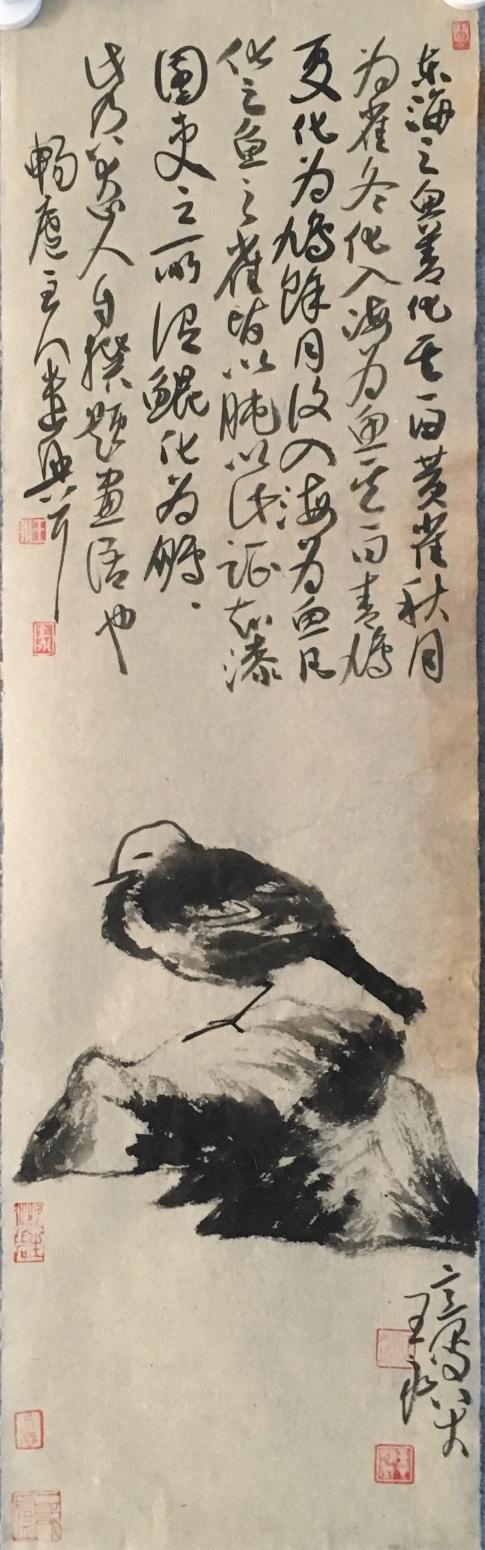 东海之鱼善化其一曰黄雀秋月
为雀冬化入海为鱼其一曰青鳩
夏化为鳩餘月復入海为鱼凡
化之鱼之雀皆以肫以此証知漆
園吏之所谓鲲化为鵬
此乃八大山人自撰题畫语也
暢庵主人
意写八大
王